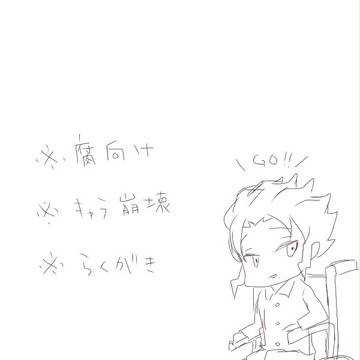 ※ 腐向け
\ GO!! /
※ キャラ崩壊
※ らくがき